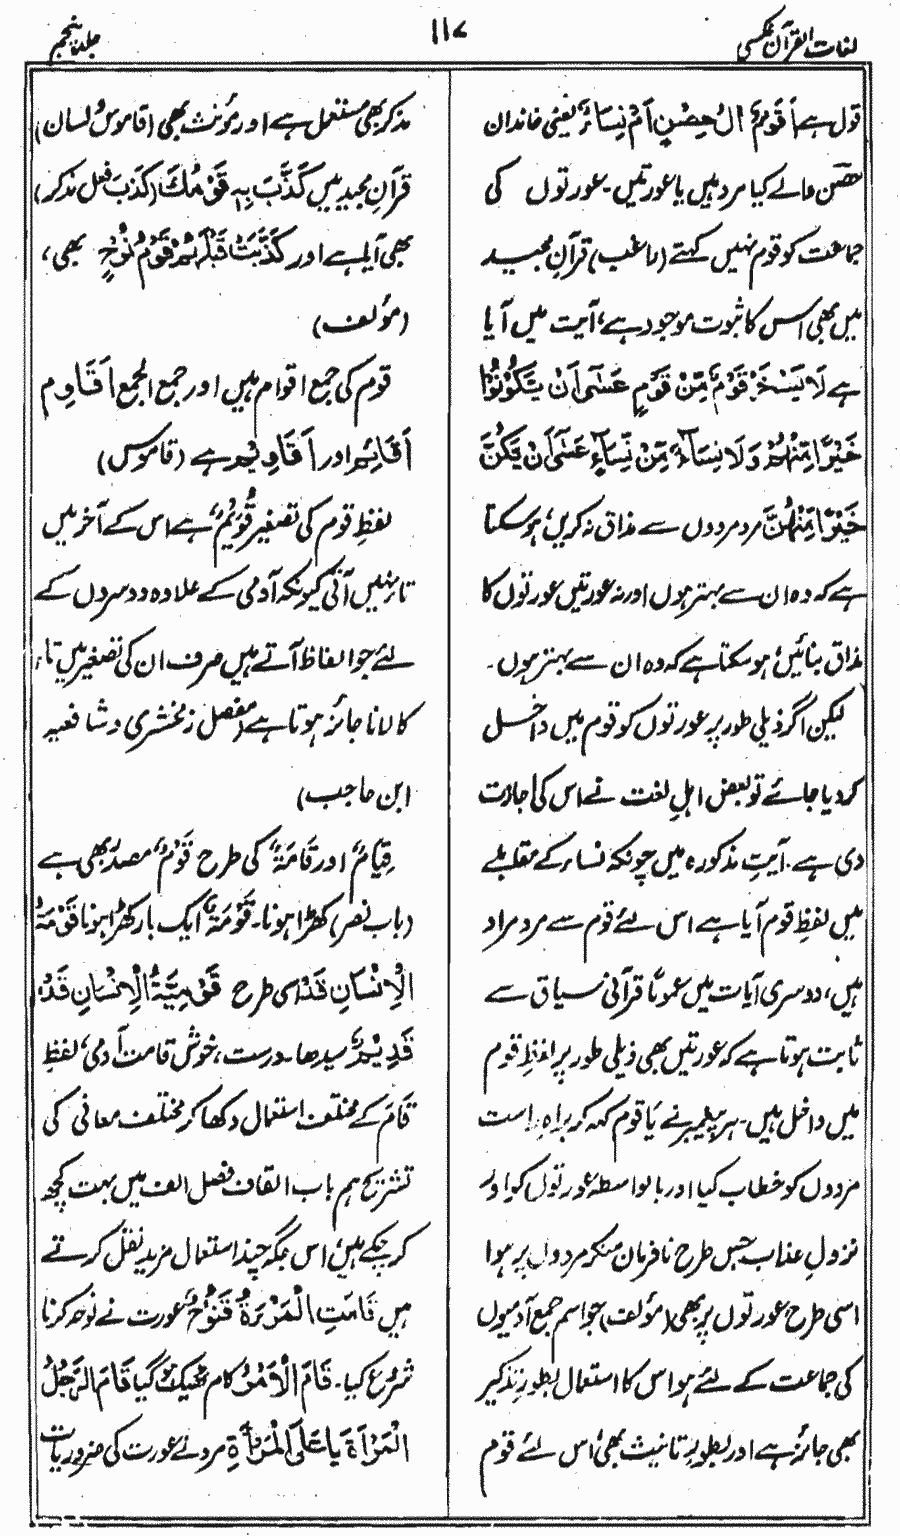 لغات القرآن عکسی
۱۱۷
جلد پنجم
قول ہے أَقَوْمٌ اٰلُ حِصْنٍ اَمْ نِسَاءُ یعنی خاندان
حصن والے کیا مرد ہیں یا عورتیں۔ عورتوں کی
جماعت کو قوم نہیں کہتے (راغب) قرآن مجید
میں بھی اس کا ثبوت موجود ہے، آیت میں آیا
ہے لَا یَسْخَرْ قَوْمٌ مِّنْ قَوْمٍ عَسٰۤی اَنْ یَّکُوْنُوْا
خَیْرًا مِّنْهُمْ وَلَا نِسَآءٌ مِّنْ نِّسَآءٍ عَسٰۤی اَنْ یَّکُنَّ
خَیْرًا مِّنْهُنَّ مرد مردوں سے مذاق نہ کریں، ہو سکتا
ہے کہ وہ ان سے بہتر ہوں اور نہ عورتیں عورتوں کا
مذاق بنائیں، ہو سکتا ہے کہ وہ ان سے بہتر ہوں۔
لیکن اگر ذیلی طور پر عورتوں کو قوم میں داخل
کردیا جائے تو بعض اہلِ لغت نے اس کی اجازت
دی ہے۔ آیتِ مذکورہ میں چونکہ نساء کے مقابلے
میں لفظِ قوم آیا ہے اس لئے قوم سے مرد مراد
ہیں، دوسری آیات میں عموماً قرآنی سیاق سے
ثابت ہوتا ہے کہ عورتیں بھی ذیلی طور پر لفظِ قوم
میں داخل ہیں۔ ہر پیغمبر نے یَا قوم کہہ کر براہِ راست
مردوں کو خطاب کیا اور بالواسطہ عورتوں کو اور
نزولِ عذاب جس طرح نافرمان منکر مردوں پر ہوا
اسی طرح عورتوں پر بھی (مؤلف) جو اسم جمع آدمیوں
کی جماعت کے لئے ہو اس کا استعمال بطورِ تذکیر
بھی جائز ہے اور بطورِ تانیث بھی، اس لئے قوم
مذکر بھی مستعمل ہے اور مؤنث بھی (قاموس و لسان)
قرآنِ مجید میں کَذَّبَ بِهٖ قَوْمُكَ (کَذَّبَ فعل مذکر)
بھی آیا ہے اور کَذَّبَتْ قَبْلَهُمْ قَوْمُ نُوْحٍ بھی،
(مؤلف)
قوم کی جمع اقوام ہیں اور جمع الجمع اَقَاوِم
اَقَائِم اور اَقَاوِیم ہے (قاموس)
لفظِ قوم کی تصغیر قُوَیْمٌ ہے اس کے آخر میں
تاء نہیں آتی کیونکہ آدمی کے علاوہ دوسروں کے
لئے جو الفاظ آتے ہیں صرف ان کی تصغیر میں تاء
کا لانا جائز ہوتا ہے (مفصل زمخشری و شافعیہ
ابن حاجب)
قِیَامٌ اور قَامَةٌ کی طرح قَوْمٌ مصدر بھی ہے
(باب نصر) کھڑا ہونا۔ قَوْمَةٌ ایک بار کھڑا ہونا قَوْمَةُ
الْاِنْسَانِ قَدُّهٗ اسی طرح قَوْمِیَّةُ الْاِنْسَانِ قَدُّهٗ
قَدِیْمٌ سیدھا۔ درست، خوش قامت آدمی، لفظِ
قَامَ کے مختلف استعمال دکھا کر مختلف معانی کی
تشریح ہم باب القاف فصل الف میں بہت کچھ
کر چکے ہیں، اس جگہ چند استعمال مزید نقل کرتے
ہیں قَامَتِ الْمَرْءَةُ تَنُوْحُ عورت نے نوحہ کرنا
شروع کیا۔ قَامَ الْاَمْرُ کام ٹھیک ہو گیا قَامَ الرَّجُلُ
الْمَرْاَةَ یا عَلَی الْمَرْأَةِ مرد نے عورت کی ضروریات